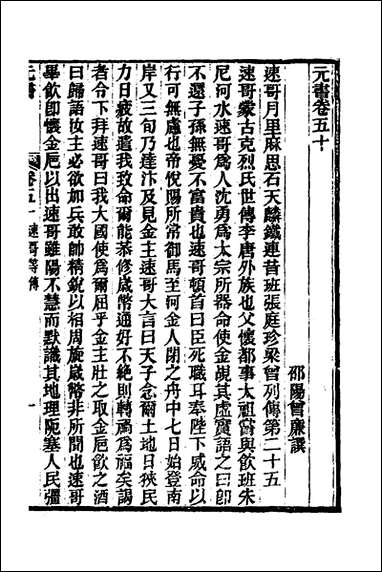 元書卷五十
邵陽曾廉譔
速哥月里麻思石天麟鐵連昔班張庭珍梁曾列傳第二十五
速哥蒙古克烈氏世傳李唐外族也父懷都事太祖嘗與飲班朱
尼河水速哥爲人沈勇爲太宗所器命使金覘其虛實語之曰卽
不還子孫無憂不富貴也速哥頓首曰臣死職耳奉陛下威命以
行可無慮也帝悅賜所常御馬至河金人閉之舟中七日始登南
岸又三旬乃達汴及見金主速哥大言曰天子念爾土地日狹民
力日疲故遣我致命爾能恭修歲幣通好不絕則轉禍爲福矣謁
者令下拜速哥曰我大國使爲爾屈乎金主壯之取金巵飲之酒
曰歸語汝主必欲加兵敢帥精銳以相周旋歲幣非所聞也速哥
畢飲卽懷金巵以出速哥雖陽不慧而默識其地理阨塞人民彊
元書 卷五十 速哥等傳 一